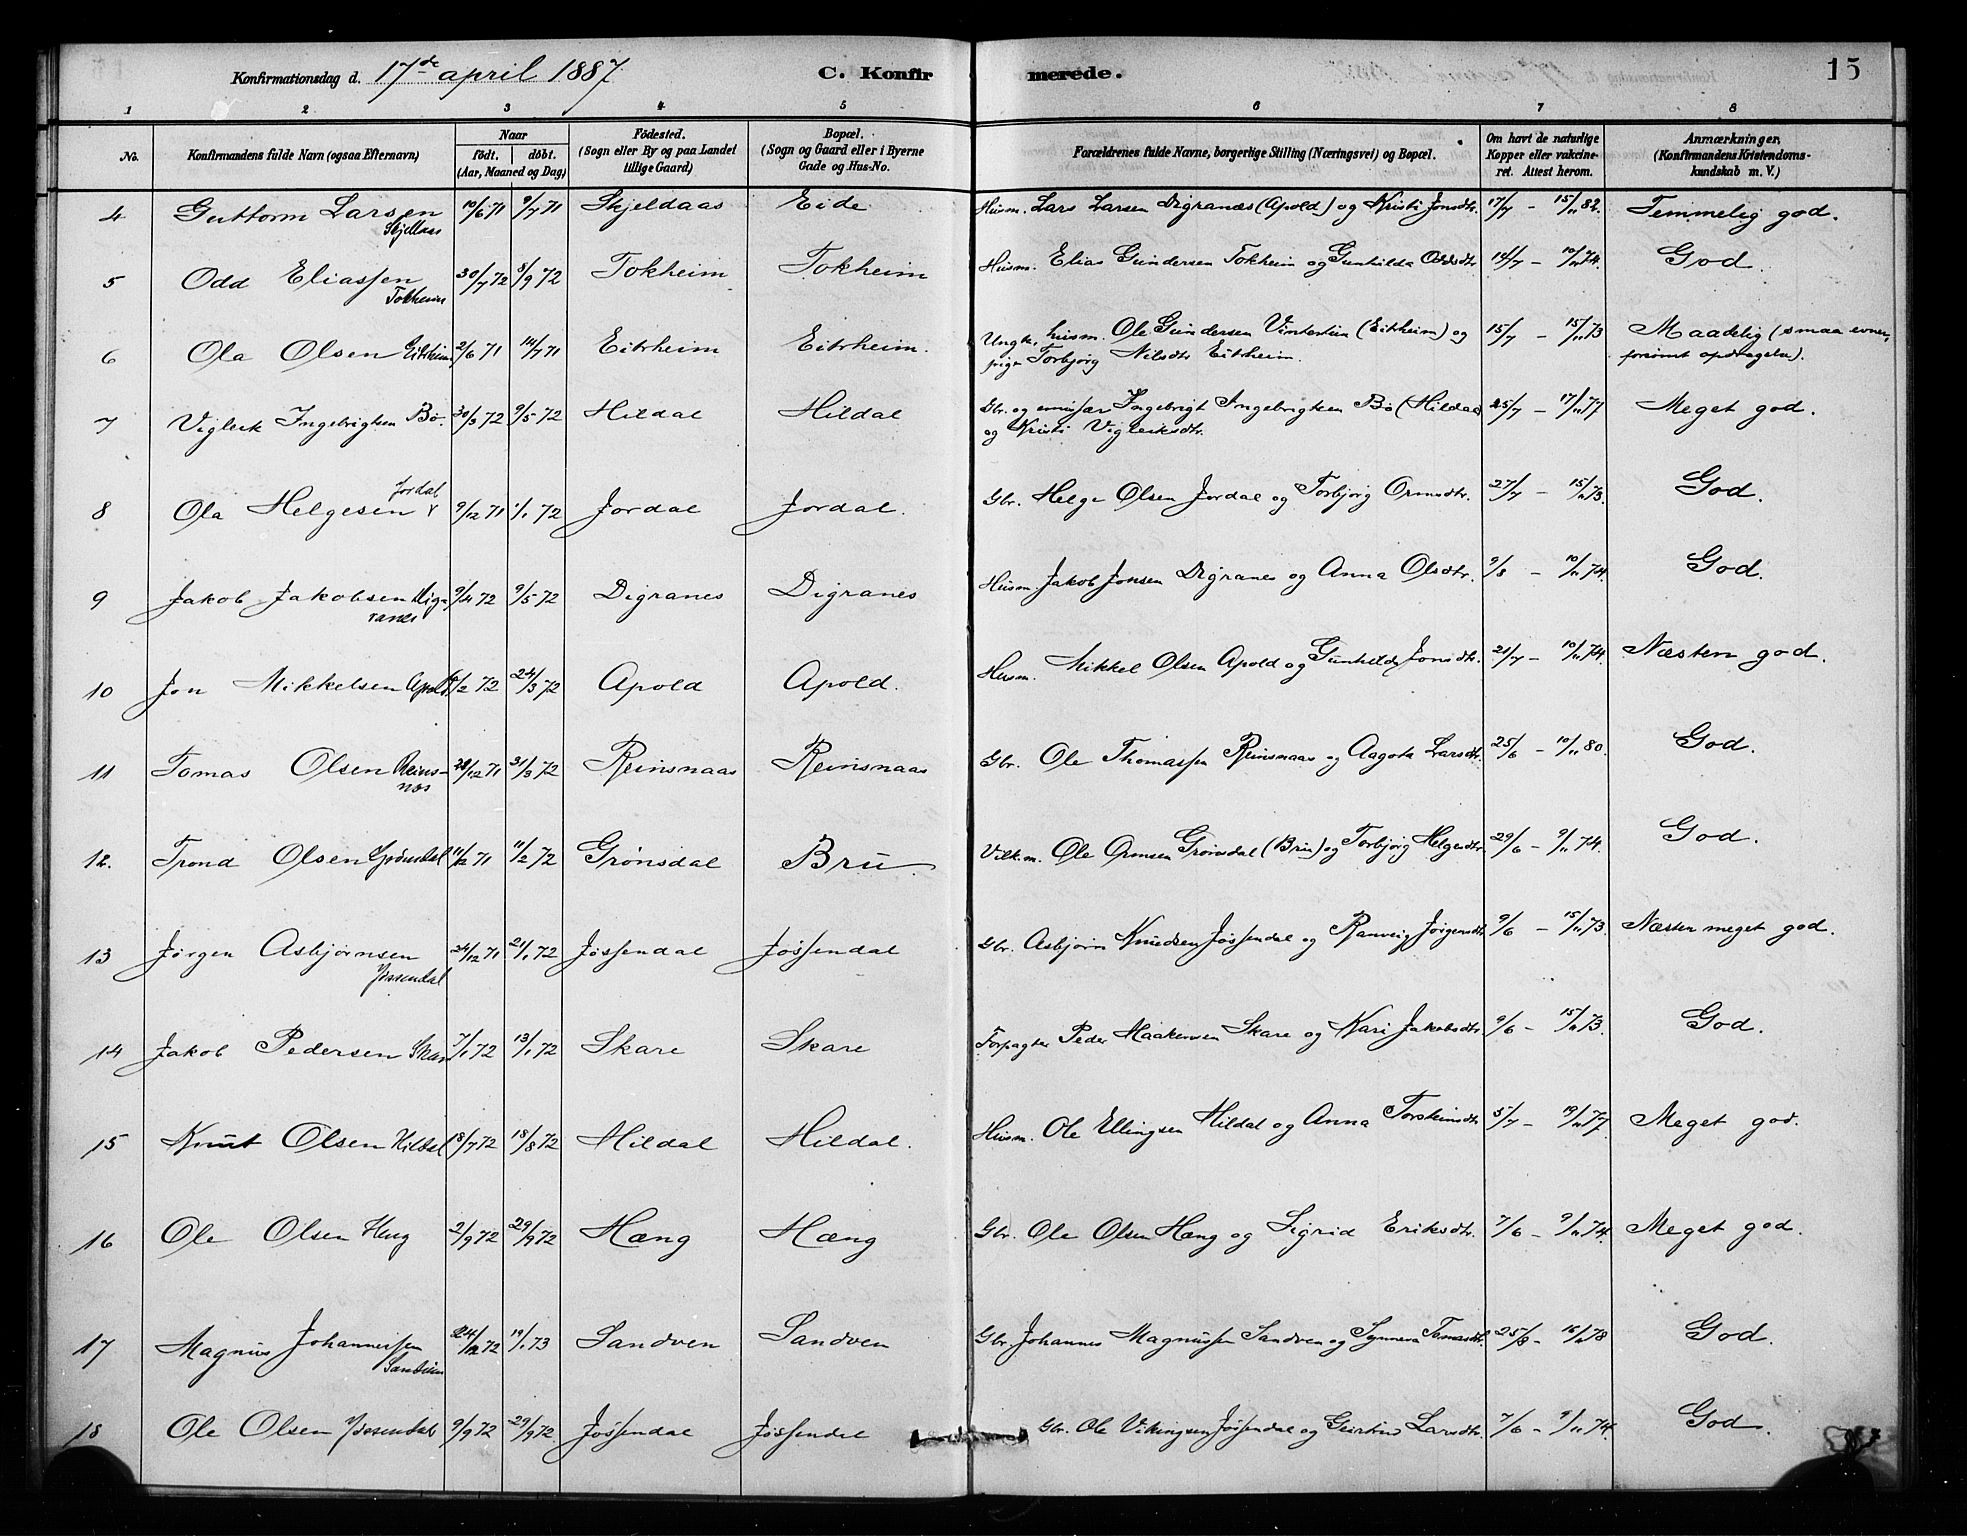 Konfirmationsdag d. 17de april 1887. C. Konfirmerede. 15
1 2 3 4 5 6 7 8
No. Konfirmandens fulde Navn (ogsaa Efternavn) Naar født. døbt. (Aar, Maaned og Dag) Födested. (Sogn eller By og paa Landet tillige Gaard) Bopæl. (Sogn og Gaard eller i Byerne Gade og Hus-No. Forældrenes fulde Navne, borgerlige Stilling (Næringsvei) og Bopæl. Om havt de naturlige Kopper eller vakcineret. Attest herom. Anmærkninger. (Konfirmandens Kristendomskundskab m. V.)
4 Guttorm Larsen Skjeldaas 10/6 71 9/7 71 Skjeldaas Eide Husm. Lars Larsen Digranæs (Apold) og Kristi Jonsdtr. 17/7 – 15/11 82. Temmelig god.
5 Odd Eliassen Tokheim 30/7 72 8/9 72 Tokheim Tokheim Husm. Elias Gundersen Tokheim og Gunhilda Oddsdtr 14/7 – 10/11 74. God.
6 Ola Olsen Eitrheim 2/6 71 14/7 71 Eitrheim Eitrheim. Ungk., husm. Ole Gundersen Vintertun (Eitrheim) og
pige Torbjørg Nilsdtr Eitrheim. 15/7 – 15/11 73 Maadelig (smaa evner, forsømt opdragelse).
7 Vigleik Ingebrigtsen Bø. 30/3 72 9/5 72 Hildal Hildal Gbr. og emisær Ingebrigt Ingebrigtsen Bø (Hildal)
og Kristi Vigleiksdtr. 25/7 – 17/11 77 Meget god.
8 Ola Helgesen Jordal 9/12 71 1/1 72 Jordal Jordal. Gbr. Helge Olsen Jordal og Torbjørg Ormsdtr. 27/7 – 15/11 73. God.
9 Jakob Jakobsen Digranes 9/4 72 9/5 72 Digranes Digranes Husm. Jakob Jonsen Digranes og Anna Olsdtr. 9/8 – 10/11 74. God.
10 Jon Mikkelsen Apold /2 72 24/3 72 Apold Apold. Husm. Mikkel Olsen Apold og Gunhilda Jonsdtr. 21/7 – 10/11 74. Næsten god.
11 Tomas Olsen Reinsnos 28/12 71 31/3 72 Reinsnaas Reinsnaas Gbr. Ole Thomassen Reinsnaas og Aagota Larsdtr. 25/6 – 10/11 80. God.
12. Trond Olsen Grönsdal 11/12 71 11/2 72 Grønsdal Bru. Vilk.m. Ole Ormsen Grønsdal (Bru) og Torbjørg Helgesdtr. 29/6 – 9/11 74. God.
13 Jørgen Asbjørnsen Jøssendal 24/12 71 21/1 72 Jøssendal Jøssendal Gbr. Asbjørn Knudsen Jøssendal og Ranveig Jørgensdtr. 9/6 – 15/11 73. Næsten meget god.
14 Jakob Pedersen Skare 7/1 72 13/1 72 Skare Skare Forpagter Peder Haakensen Skare og Kari Jakobsdtr. 9/6 – 15/11 73. God.
15 Knut Olsen Hildal 18/7 72 18/8 72 Hildal Hildal. Husm. Ole Ellingsen Hildal og Anna Torsteinsdtr. 5/7 – 19/11 77. Meget god.
16 Ole Olsen Heng 2/9 72 29/9 72 Hæng Hæng Gbr. Ole Olsen Hæng og Sigrid Eriksdtr. 7/6 – 9/11 74. Meget god.
17 Magnus Johannessen Sandven 24/12 72 19/1 73 Sandven Sandven Gbr. Johannes Magnussen Sandven og Synneva Tomasdtr. 25/8 – 16/11 78 God.
18 Ole Olsen Jøssendal 9/9 72 29/9 72 Jøssendal Jøssendal Gbr. Ole Vikingsen Jøssendal og Geirtrud Larsdtr. 7/6 – 9/11 74. God.